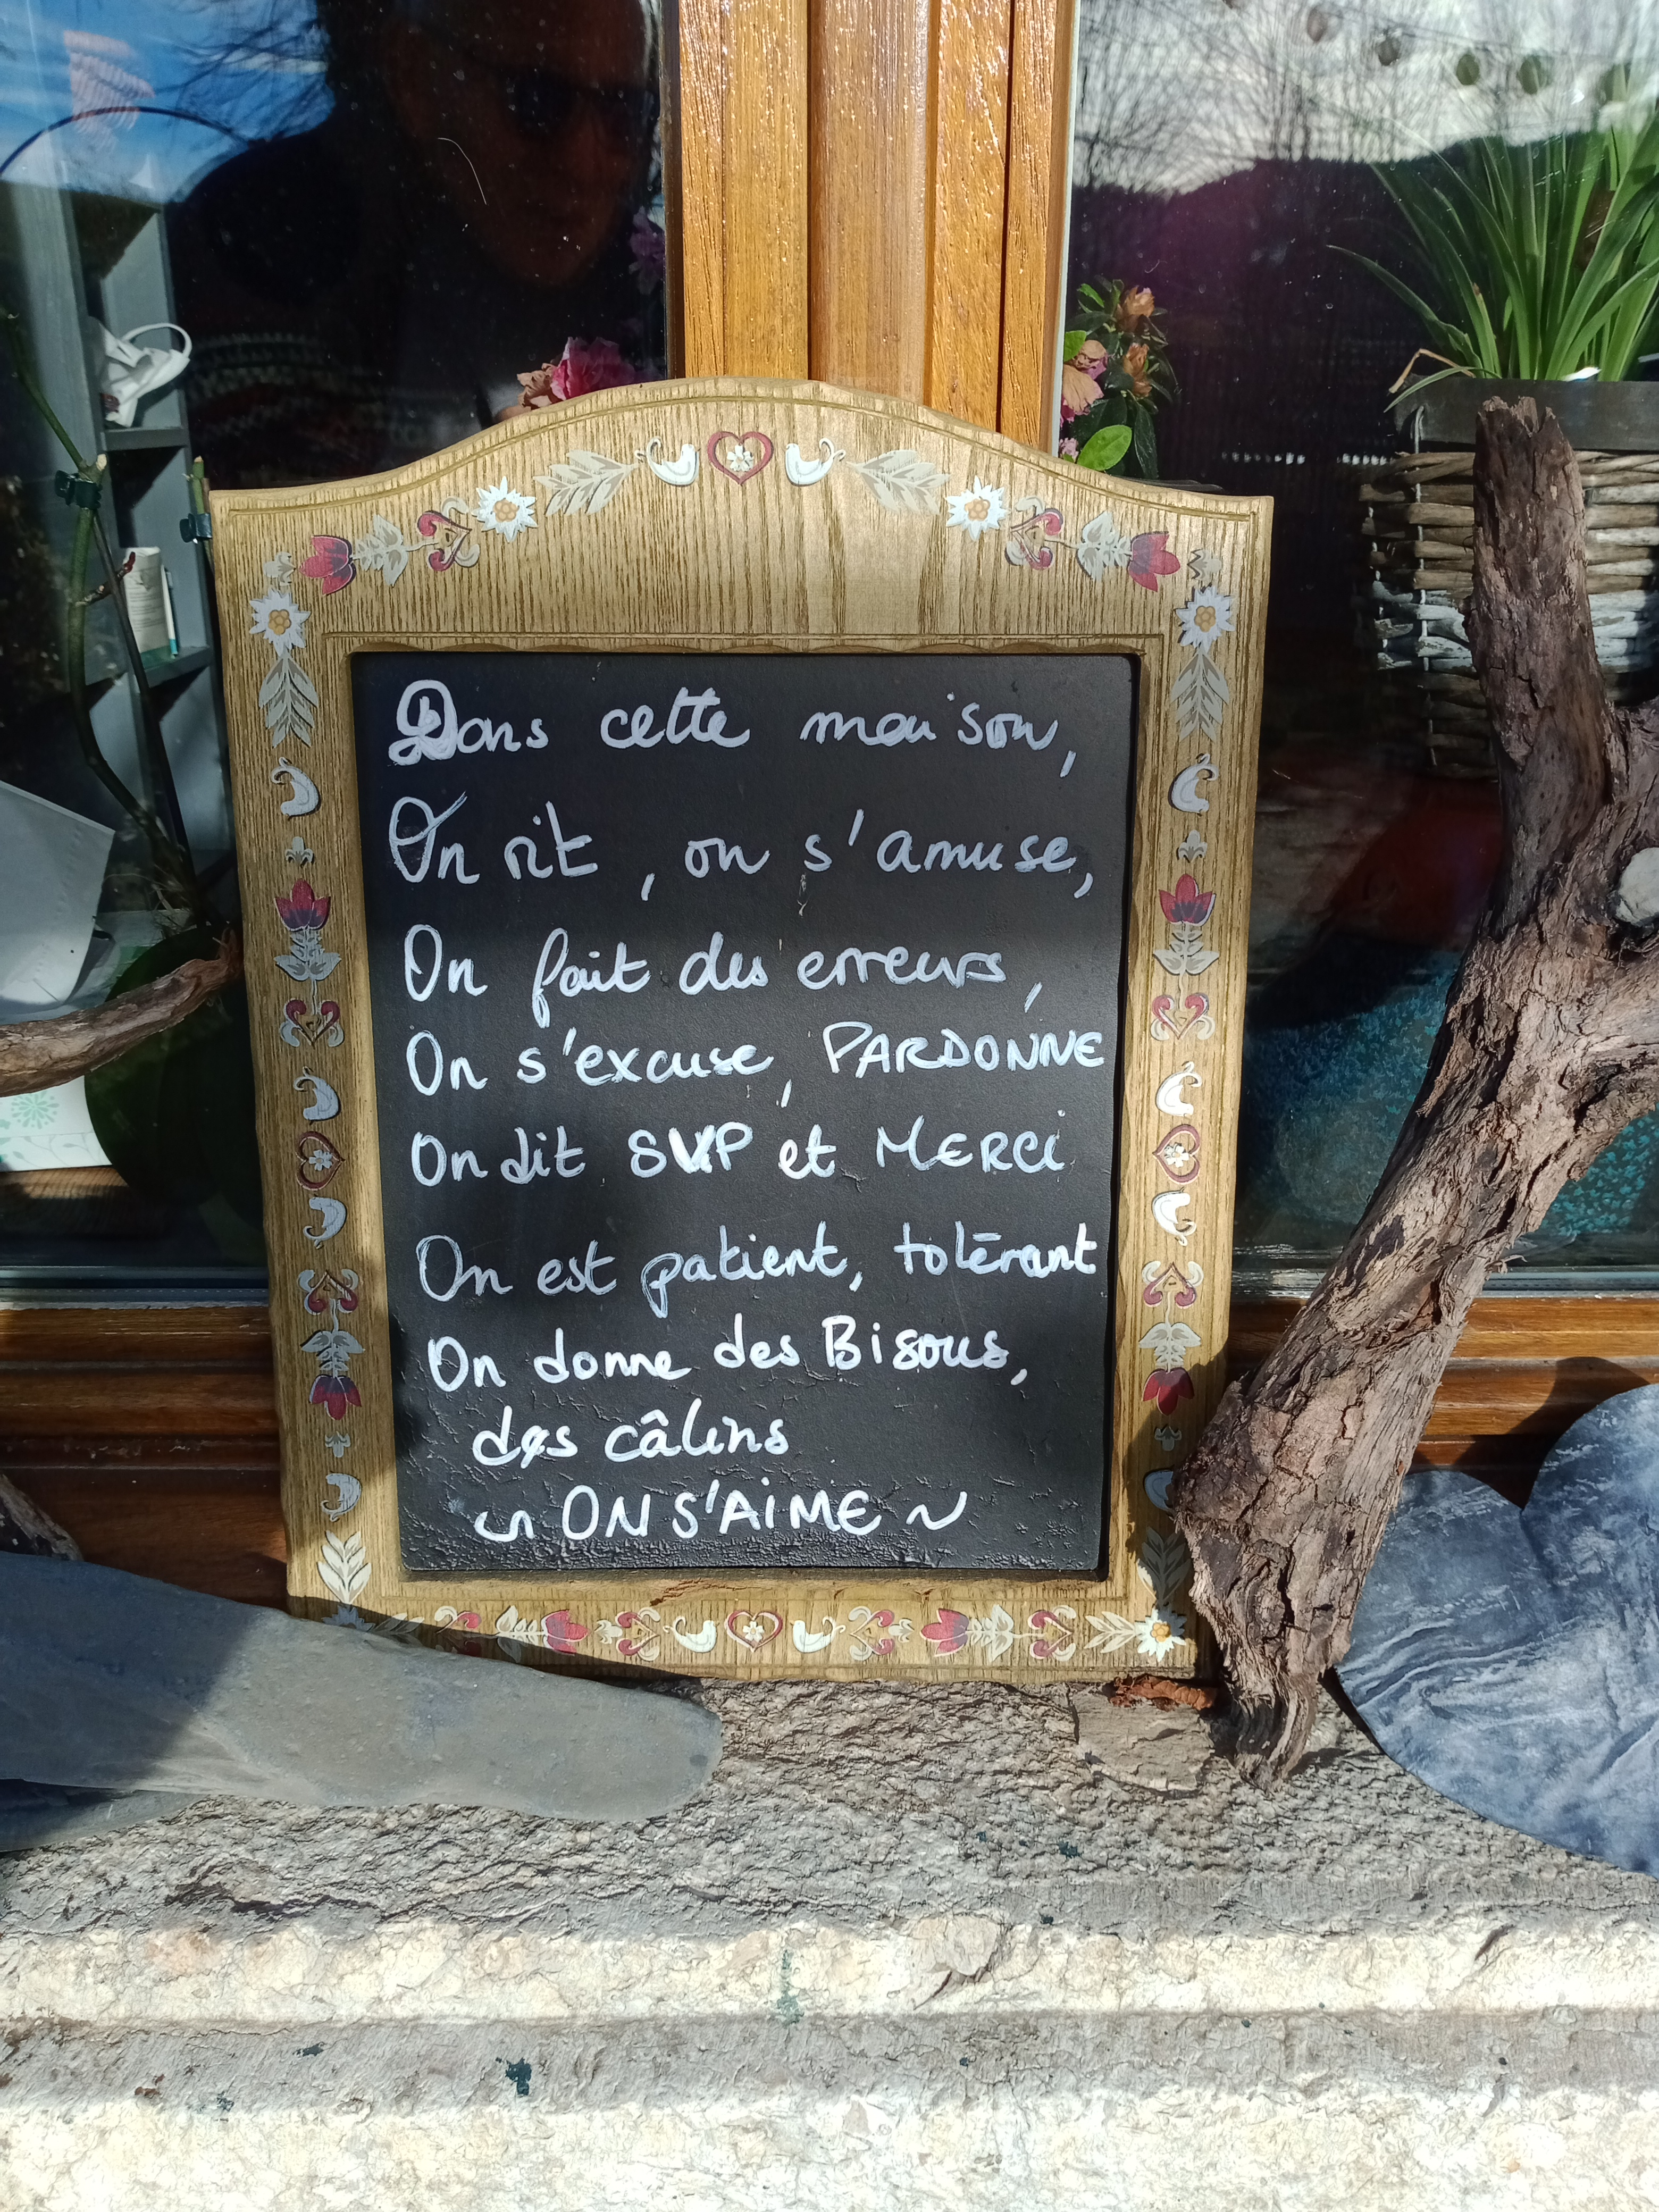 Dans cette maison,
On rit, on s'amuse,
On fait des erreurs,
On s'excuse, PARDONNE
On dit SVP et MERCI
On est patient, tolérant
On donne des Bisous,
des câlins
~ ON S'AIME ~